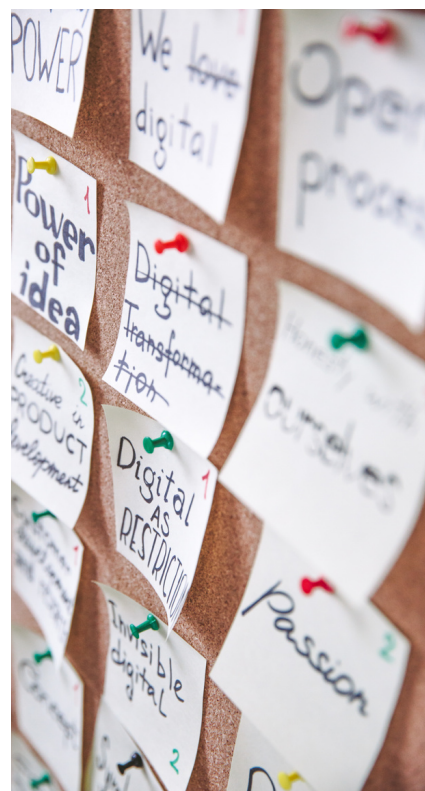 POWER
We love
digital
Open
process
1
Power
of
idea
Digital
Transforma-
tion
Honesty with
ourselves
2
Creative in
PRODUCT
development
1
Digital
AS
RESTRICTION
Invisible
digital
2
2
Passion